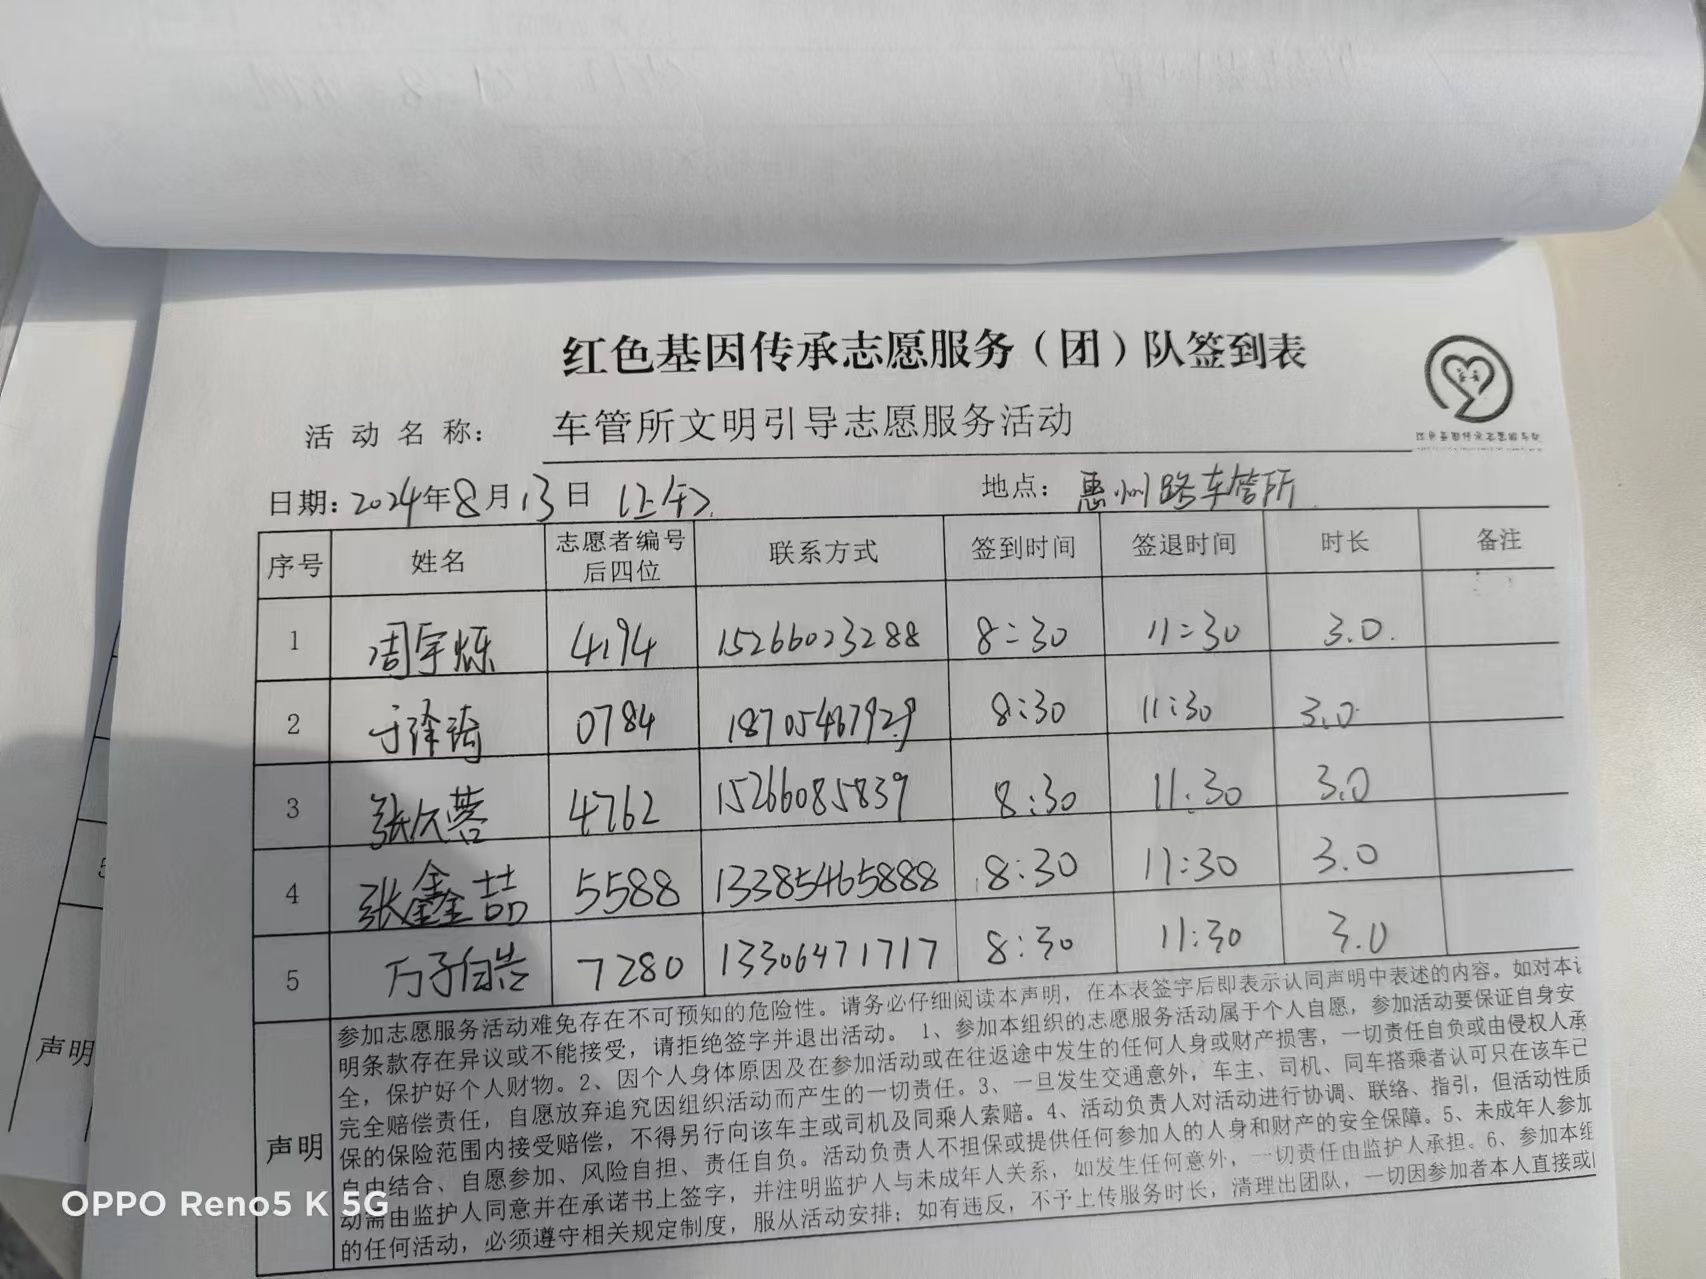 红色基因传承志愿服务（团）队签到表
活动名称： 车管所文明引导志愿服务活动
日期：2024年8月13日（上午） 地点：惠州路车管所
序号 姓名 志愿者编号后四位 联系方式 签到时间 签退时间 时长 备注
1 周宇烁 4194 15266023288 8:30 11:30 3.0.
2 于泽琦 0784 18705467929 8:30 11:30 3.0
3 张久蓉 4762 15266085839 8:30 11:30 3.0
4 张鑫喆 5588 13385465888 8:30 11:30 3.0
5 万子皓 7280 13306471717 8:30 11:30 3.0
声明
参加志愿服务活动难免存在不可预知的危险性。请务必仔细阅读本声明，在本表签字后即表示认同声明中表述的内容。如对本
明条款存在异议或不能接受，请拒绝签字并退出活动。1、参加本组织的志愿服务活动属于个人自愿，参加活动要保证自身安
全，保护好个人财物。2、因个人身体原因及在参加活动或在往返途中发生的任何人身或财产损害，一切责任自负或由侵权人承
完全赔偿责任，自愿放弃追究因组织活动而产生的一切责任。3、一旦发生交通意外，车主、司机、同车搭乘者认可只在该车已
保的保险范围内接受赔偿，不得另行向该车主或司机及同乘人索赔。4、活动负责人对活动进行协调、联络、指引，但活动性质
自由结合、自愿参加、风险自担、责任自负。活动负责人不担保或提供任何参加人的人身和财产的安全保障。5、未成年人参加
动需由监护人同意并在承诺书上签字，并注明监护人与未成年人关系，如发生任何意外，一切责任由监护人承担。6、参加本组
的任何活动，必须遵守相关规定制度，服从活动安排；如有违反，不予上传服务时长，清理出团队，一切因参加者本人直接或
声明
OPPO Reno5 K 5G